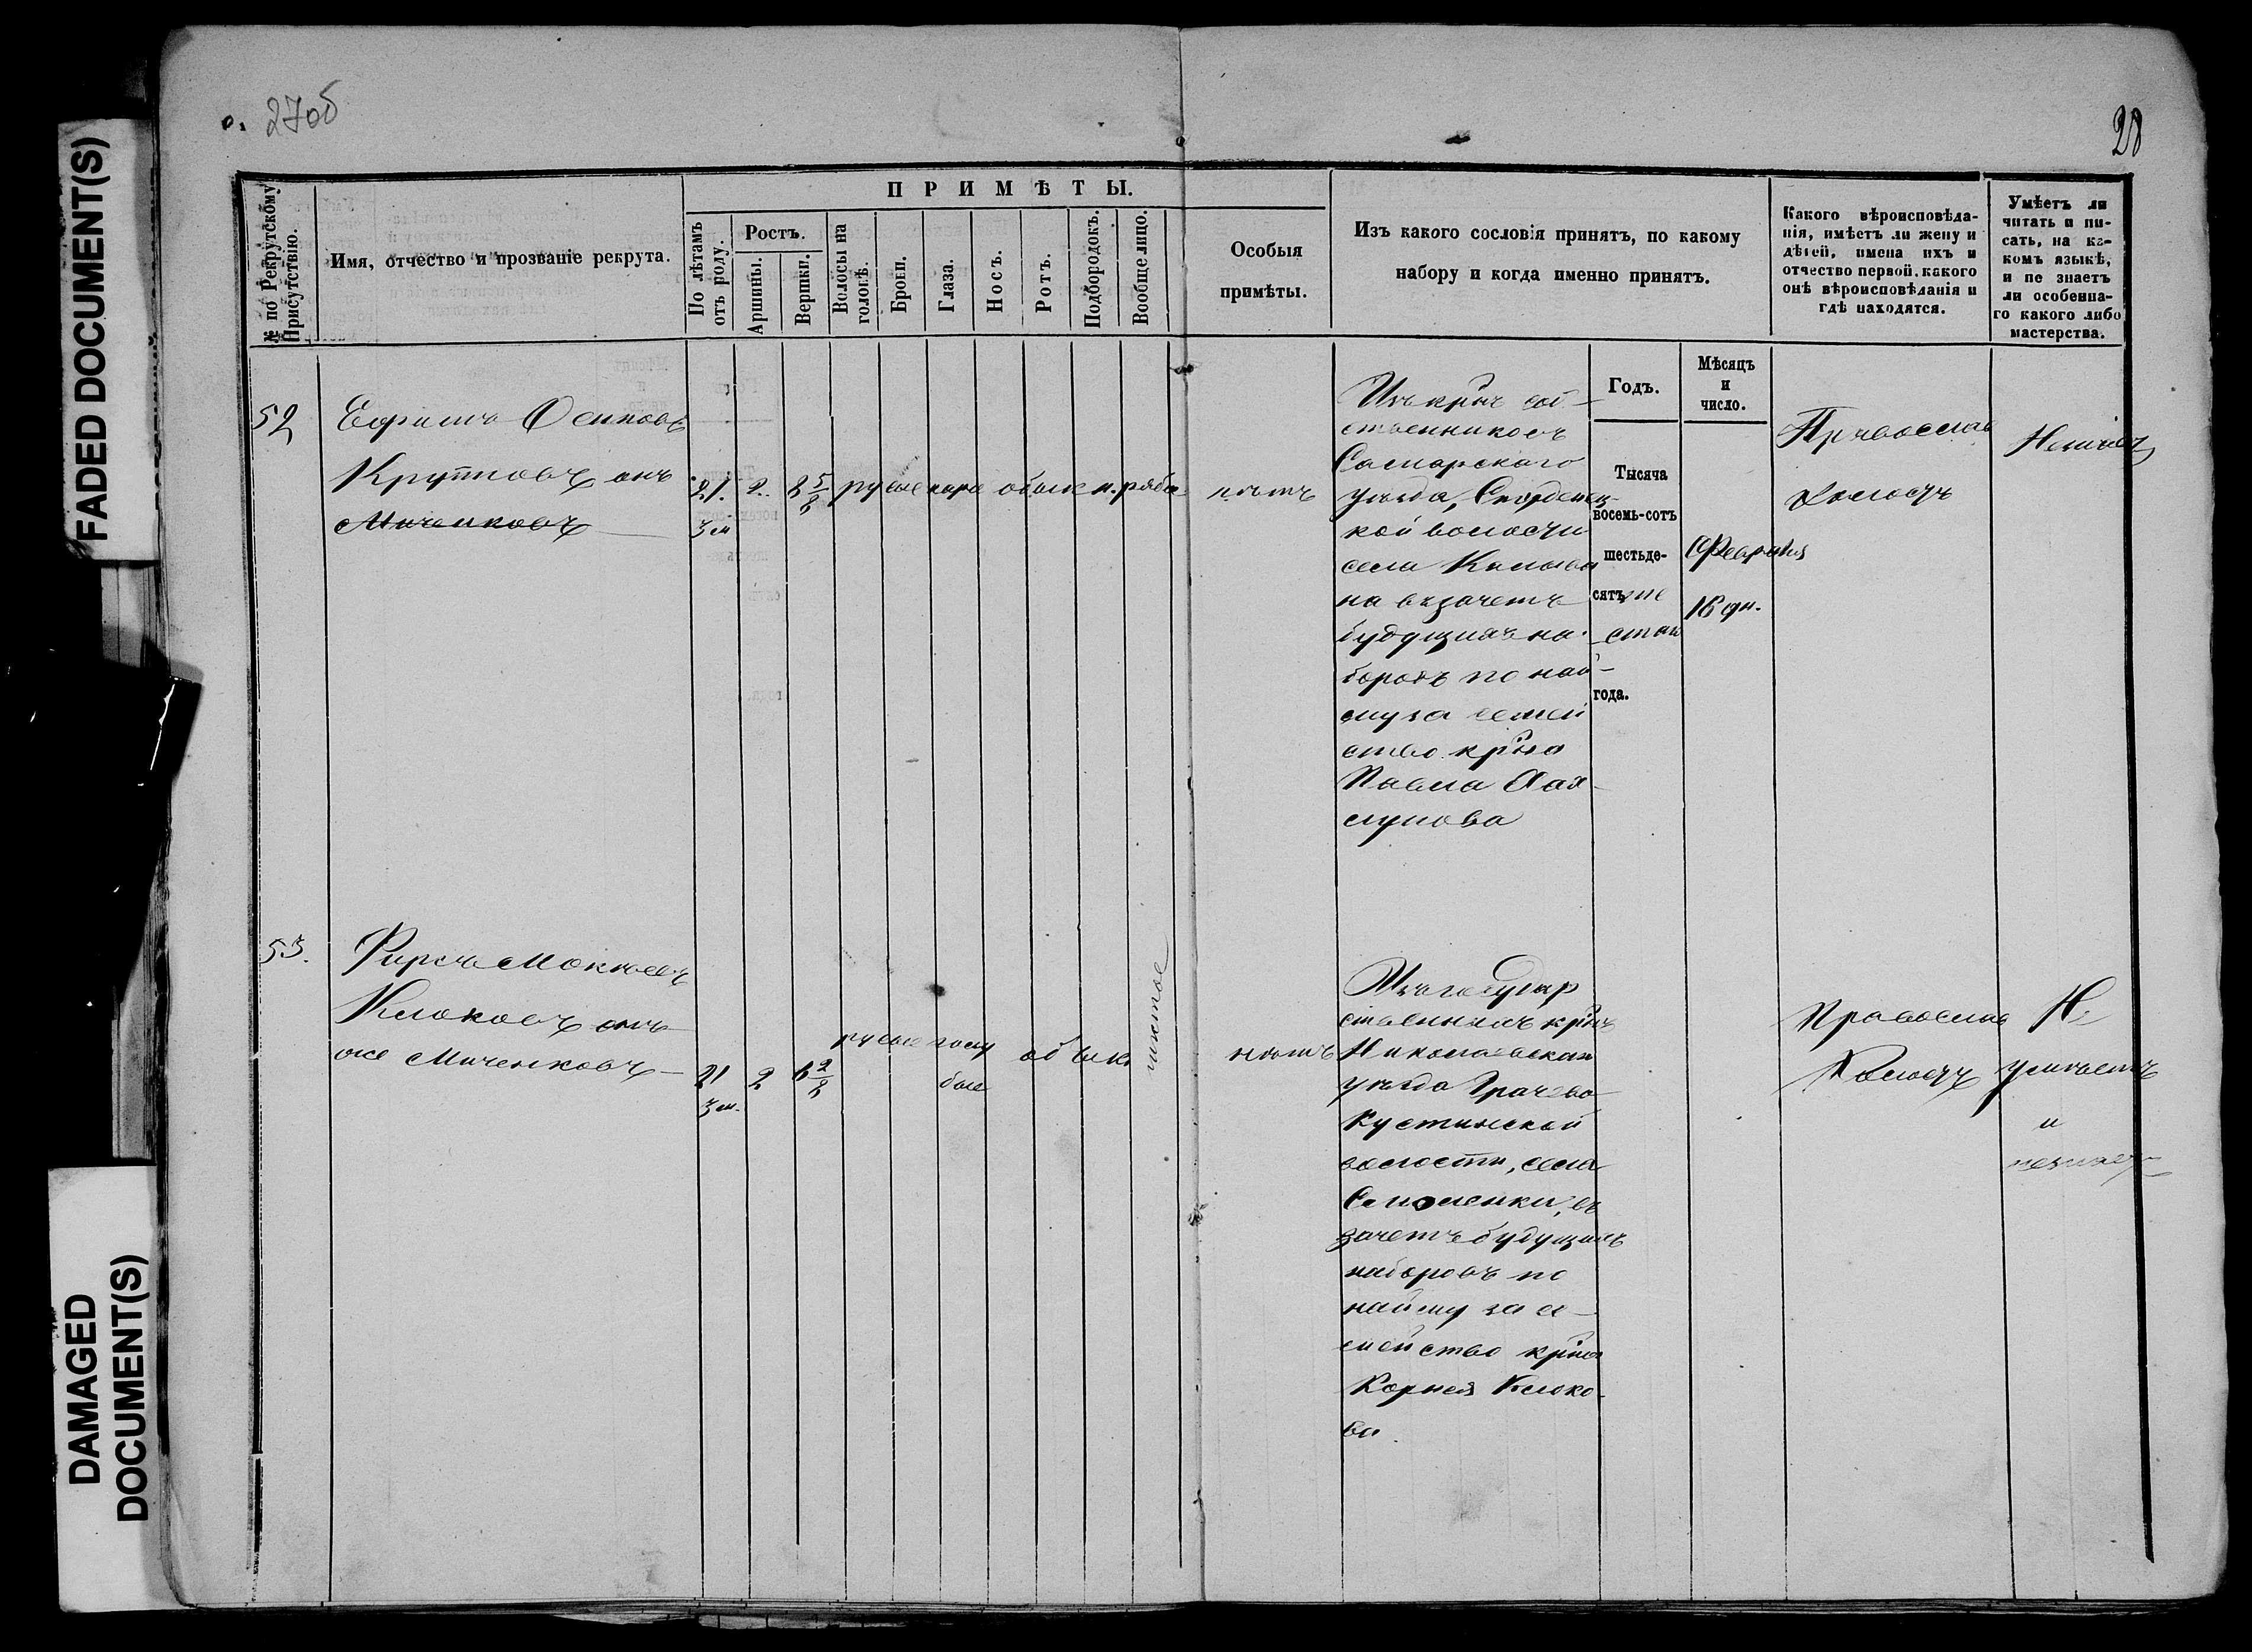 FADED DOCUMENT(S)
DAMAGED
DOCUMENT(S)
27об
28
№ по Рекрутскому
Присутствію.
Имя, отчество и прозваніе рекрута.
ПРИМѢТЫ.
По лѣтамъ
отъ роду.
Ростъ.
Аршины.
Вершки.
Волосы на
головѣ.
Брови.
Глаза.
Носъ.
Ротъ.
Подбородокъ.
Вообще лицо.
Особыя
примѣты.
Изъ какого сословія принятъ, по какому
набору и когда именно принятъ.
Какого вѣроисповѣда-
нія, имѣетъ ли жену и
дѣтей, имена ихъ и
отчество первой, какого
онѣ вѣроисповѣданія и
гдѣ находятся.
Умѣетъ ли
читать и пи-
сать, на ка-
комъ языкѣ,
и не знаетъ
ли особенна-
го какого либо
мастерства.
Годъ.
Мѣсяцъ
и
число.
52
Ефимъ Осиповъ
Крупновъ онъ
Миченковъ
21.
3 м
2
3 5/8
русые
каріе
обыкн.
рябо
нѣтъ
Изъ крнъ соб-
ственниковъ
Самарскаго
уѣзда,
кой волости
села
на въ зачетъ
будущихъ на-
боровъ по най-
му за семей
ство крна
Павла
Тысяча
восемь-сотъ
шестьде-
сятъ
года.
Февраля
16 дн.
Православ
Холостъ
53.
Фирсъ Мокѣевъ
Клоковъ онъ
же Миченковъ
21
3 м.
2
6 2/8
русые
голу
бые
обыкн
чистое
нѣтъ
Изъ государ
ственныхъ крнъ
Николаевскаго
уѣзда Грачево
Кустинской
волости, села
въ
зачетъ будущихъ
наборовъ по
найму за се-
мейство крна
Корнея Клоко-
ва.
Православ
Холостъ
Не
умѣетъ
и
незнаетъ